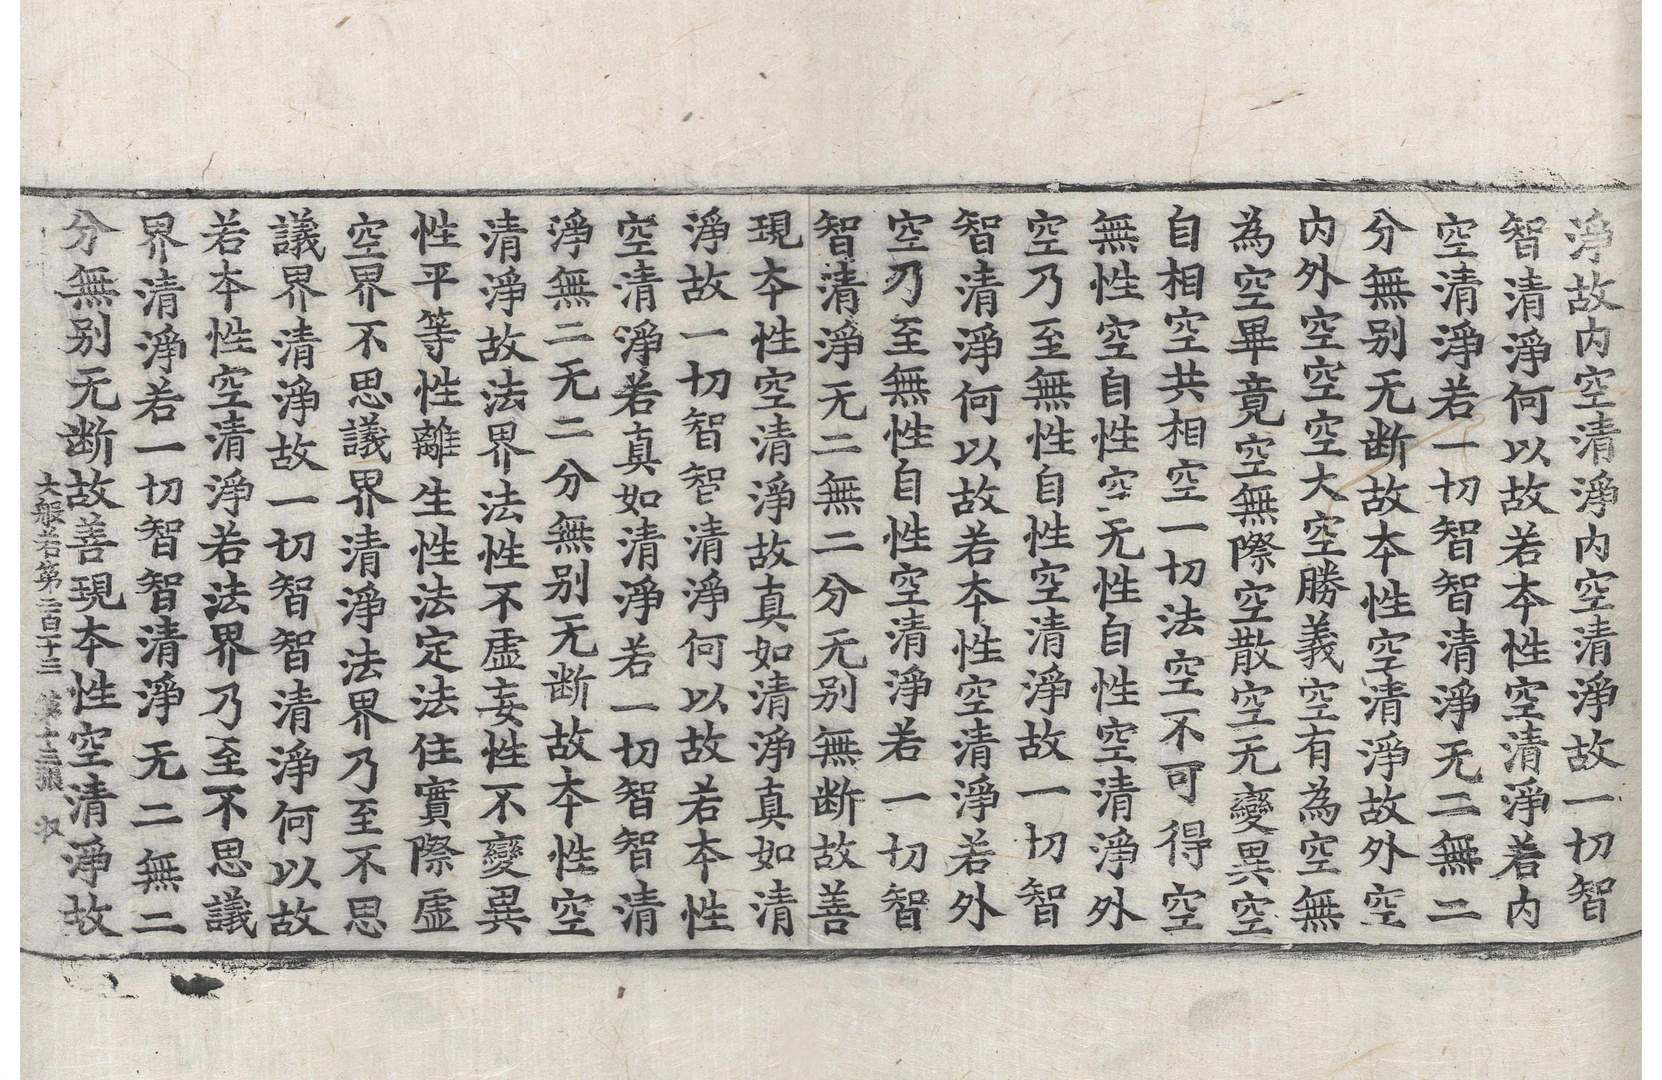 淨故内空清淨内空清淨故一切智
智清淨何以故若本性空清淨若内
空清淨若一切智智清淨无二無二
分無别无断故本性空清淨故外空
内外空空空大空勝義空有為空無
為空畢竟空無際空散空无變異空
自相空共相空一切法空不可得空
無性空自性空无性自性空清淨外
空乃至無性自性空清淨故一切智
智清淨何以故若本性空清淨若外
空乃至無性自性空清淨若一切智
智清淨无二無二分无别無断故善
現本性空清淨故真如清淨真如清
淨故一切智智清淨何以故若本性
空清淨若真如清淨若一切智智清
淨無二无二分無别无断故本性空
清淨故法界法性不虛妄性不變異
性平等性離生性法定法住實際虛
空界不思議界清淨法界乃至不思
議界清淨故一切智智清淨何以故
若本性空清淨若法界乃至不思議
界清淨若一切智智清淨无二無二
分無别无断故善現本性空清淨故
大般若第二百十三 第十三張 収